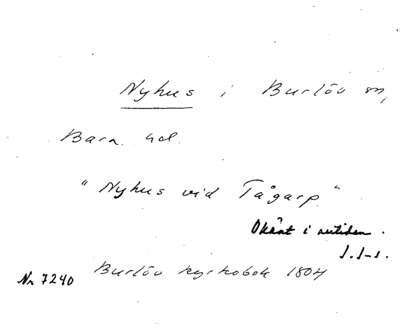 Nyhus i Burlöv sn,
Bara hd.
"Nyhus vid Tågarp"
Okänt i nutiden.
J. J-s.
Nr 7240 Burlöv kyrkobok 1804